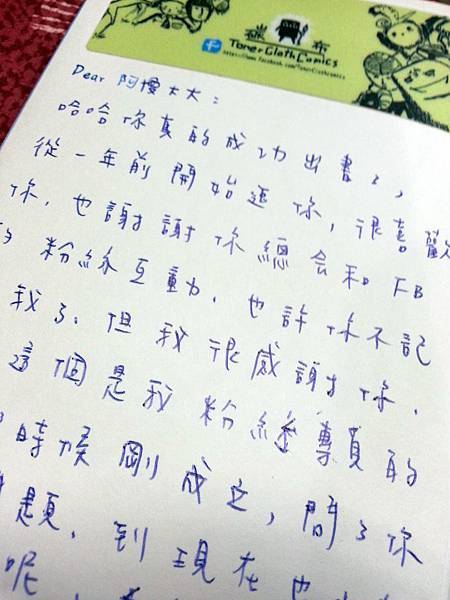 碳布
TonerClothComics
https://www.facebook.com/TonerClothComics
Dear 阿慢大大:
哈哈你真的成功出書了,
從一年前開始追你,很喜歡
你,也謝謝你總会和FB
的粉絲互動,也許你不記
我了,但我很感謝你,
這個是我粉絲專頁的
時候剛成立,問了你
題,到現在也
呢